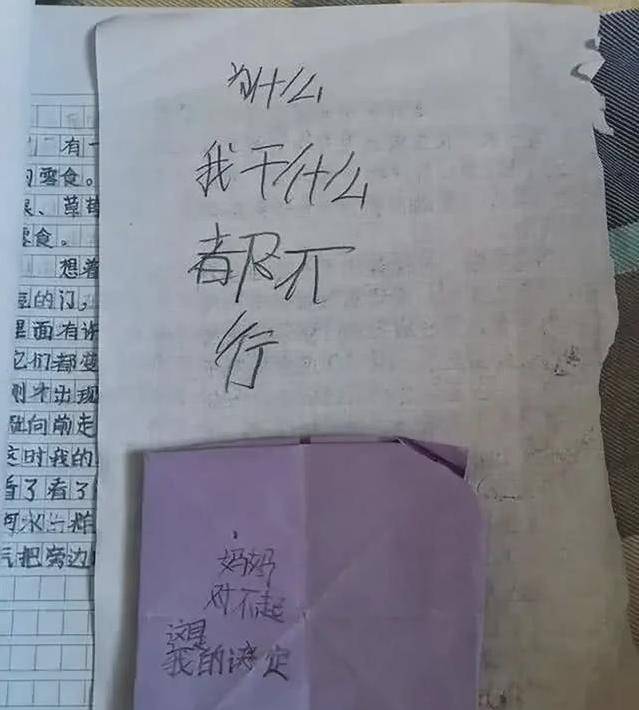 有一
零食。
、草莓
零食。
想着
的门。
里面有许
它们都变
刚才出现
向前走
这时我的
看了看了
河水
把旁边
为什么
我干什么
都不
行
妈妈
对不起
这是
我的决定